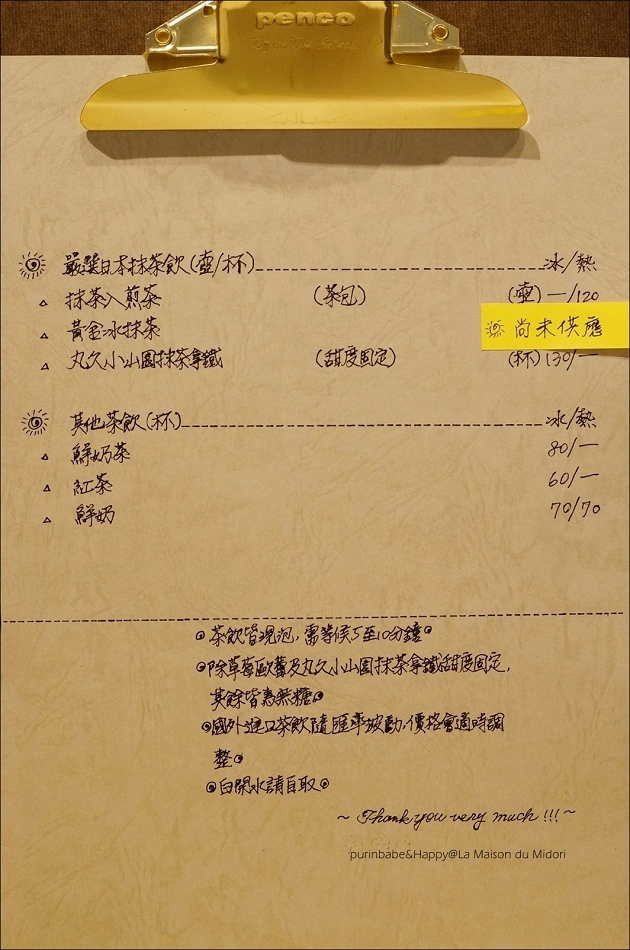 penco
嚴選日本抹茶飲(壺/杯)---冰/熱
△ 抹茶入煎茶 (茶包) (壺) —/120
△ 黃金冰抹茶 尚未供應
△ 丸久小山園抹茶拿鐵 (甜度固定) (杯) 130/—
其他茶飲(杯)---冰/熱
△ 鮮奶茶 80/—
△ 紅茶 60/—
△ 鮮奶 70/70
茶飲皆現泡,需等侯5至10分鐘。
除草莓歐蕾及丸久小山園抹茶拿鐵甜度固定,
其餘皆為無糖。
國外進口茶飲隨匯率波動,價格會適時調
整。
白開水請自取。
~ Thank you very much !!! ~
purinbabe&Happy@La Maison du Midori